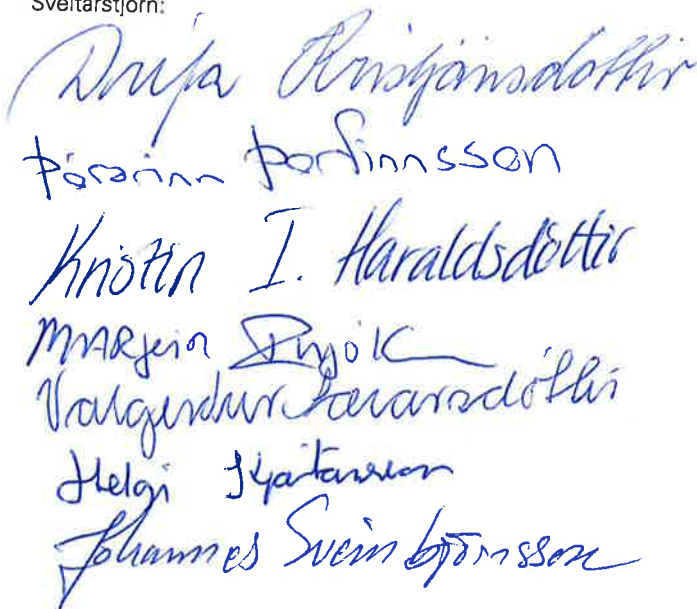 Sveitarstjórn:
Drífa Kristjánsdóttir
Þórarinn Þorfinnsson
Kristín I. Haraldsdóttir
Margeir
Valgerður Sævarsdóttir
Helgi Kjartansson
Jóhannes Sveinbjörnsson